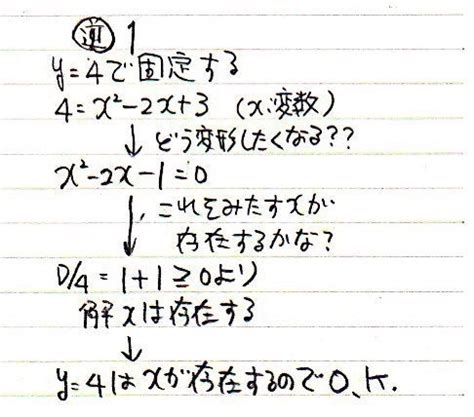 逆 1
y=4で固定する
4=x²-2x+3 (x:変数)
↓ どう変形したくなる??
x²-2x-1=0
↓ これをみたすxが
存在するかな?
D/4=1+1≧0より
解xは存在する
↓
y=4はxが存在するのでO.K.